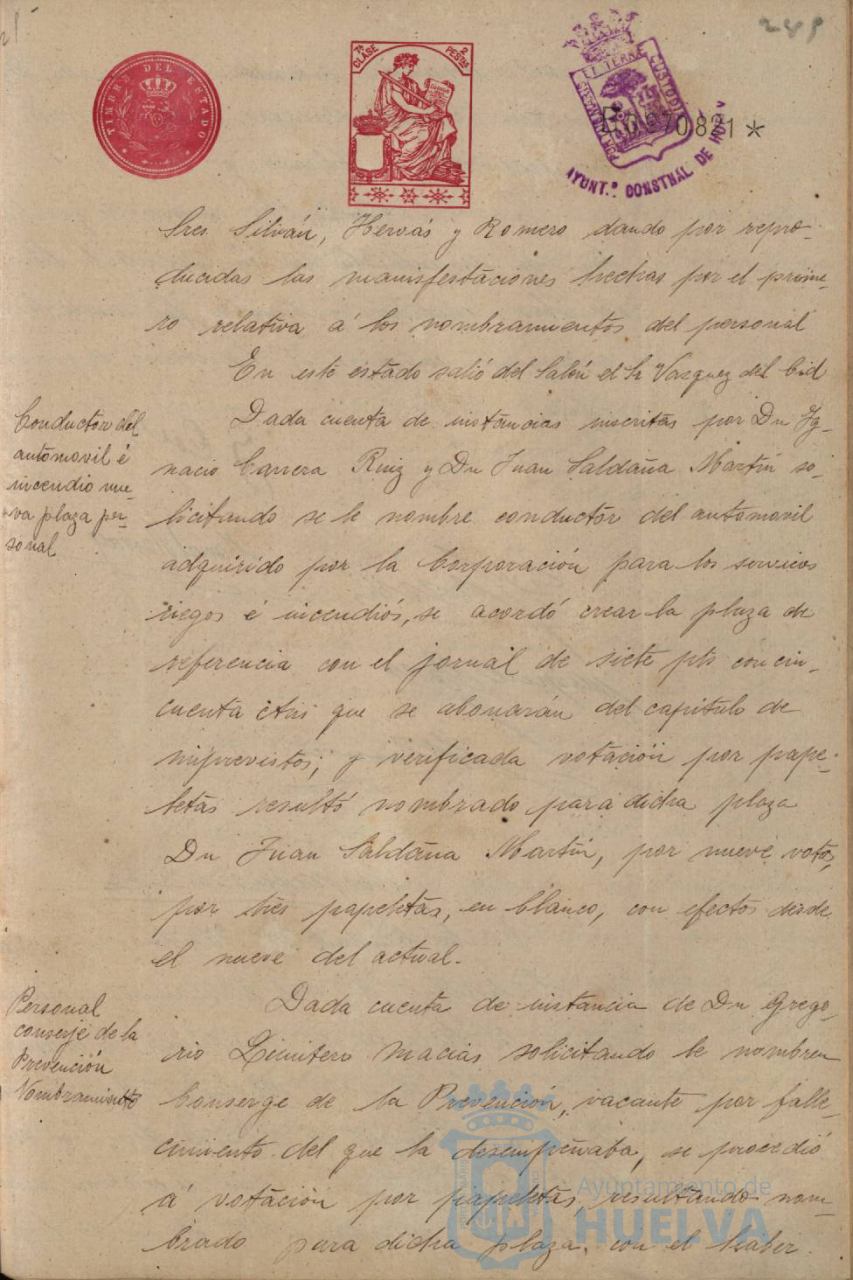 249
TIMBRE DEL ESTADO
7ª CLASE 2 PESTAS
PORTUS MARIS ET TERRAE CUSTODIA
AYUNT.º CONSTNAL DE HUELVA
0.970.821 *
Sres Silván, Hervás y Romero dando por repro-
ducidas las manifestaciones hechas por el prime-
ro relativa á los nombramientos del personal
En este estado salió del Salón el Sr Vazquez del Cid
Conductor del
automovil é
incendio nue-
va plaza per-
sonal
Dada cuenta de instancias inscritas por Dn Ig-
nacio Carrera Ruiz y Dn Juan Saldaña Martín so-
licitando se le nombre conductor del automovil
adquirido por la Corporación para los servicios
riegos é incendiós, se acordó crear la plaza de
referencia con el jornal de siete pts con cin-
cuenta ctms que se abonarán del capitulo de
imprevistos; y verificada votación por pape-
letas resultó nombrado para dicha plaza
Dn Juan Saldaña Martín, por nueve votos,
por tres papeletas, en blanco, con efectos desde
el nueve del actual.
Personal
conserje de la
Prevención
Nombramiento
Dada cuenta de instancia de Dn Grego-
rio Macias solicitando le nombren
Conserge de la Prevención, vacante por falle-
cimiento del que la desempeñaba, se procedió
á votación por papeletas, resultando nom-
brado para dicha plaza, con el haber
Ayuntamiento de
HUELVA